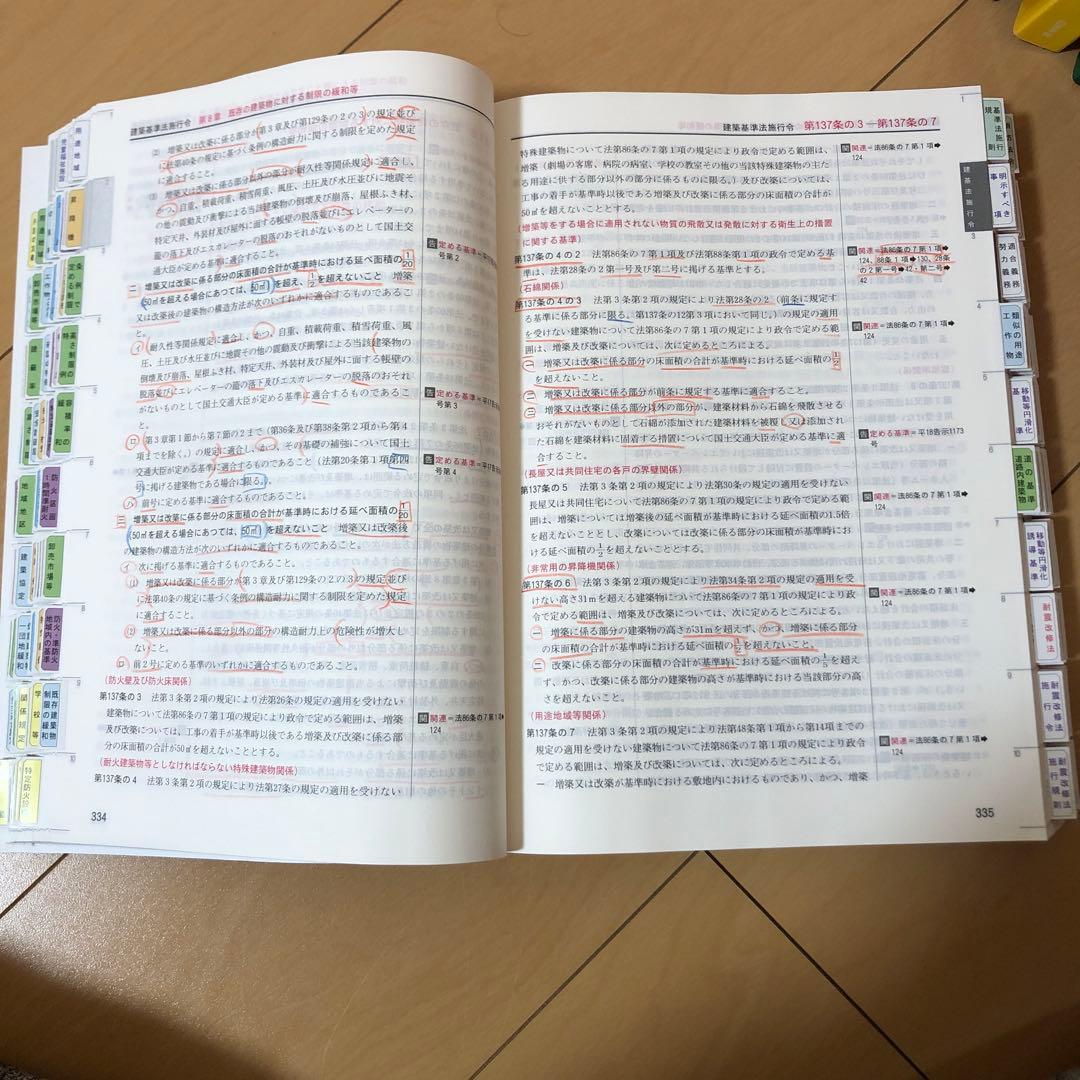 建築基準法施行令 第8章 既存の建築物に対する制限の緩和等
(2) 増築又は改築に係る部分が第3章及び第129条の2の3の規定並び
に法第40条の規定に基づく条例の構造耐力に関する制限を定めた規定
に適合すること。
(3) 増築又は改築に係る部分以外の部分が耐久性等関係規定に適合し、
かつ、自重、積載荷重、積雪荷重、風圧、土圧及び水圧並びに地震そ
の他の震動及び衝撃による当該建築物の倒壊及び崩落、屋根ふき材、
特定天井、外装材及び屋外に面する帳壁の脱落並びにエレベーターの
籠の落下及びエスカレーターの脱落のおそれがないものとして国土交
通大臣が定める基準に適合すること。
二 増築又は改築に係る部分の床面積の合計が基準時における延べ面積の1/20
(50㎡を超える場合にあつては、50㎡)を超え、1/2を超えないこと 増築
又は改築後の建築物の構造方法が次のいずれかに適合するものであるこ
と。
イ 耐久性等関係規定に適合し、かつ、自重、積載荷重、積雪荷重、風
圧、土圧及び水圧並びに地震その他の震動及び衝撃による当該建築物の
倒壊及び崩落、屋根ふき材、特定天井、外装材及び屋外に面する帳壁の
脱落並びにエレベーターの籠の落下及びエスカレーターの脱落のおそれ
がないものとして国土交通大臣が定める基準に適合するものであるこ
と。
ロ 第3章第1節から第7節の2まで(第36条及び第38条第2項から第4
項までを除く。)の規定に適合し、かつ、その基礎の補強について国土
交通大臣が定める基準に適合するものであること(法第20条第1項第四
号に掲げる建築物である場合に限る。)。
ハ 前号に定める基準に適合するものであること。
三 増築又は改築に係る部分の床面積の合計が基準時における延べ面積の1/20
(50㎡を超える場合にあつては、50㎡)を超えないこと 増築又は改築後
の建築物の構造方法が次のいずれかに適合するものであること。
イ 次に掲げる基準に適合するものであること。
(1) 増築又は改築に係る部分が第3章及び第129条の2の3の規定並び
に法第40条の規定に基づく条例の構造耐力に関する制限を定めた規定
に適合すること。
(2) 増築又は改築に係る部分以外の部分の構造耐力上の危険性が増大し
ないこと。
ロ 前2号に定める基準のいずれかに適合するものであること。
(防火壁及び防火床関係)
第137条の3 法第3条第2項の規定により法第26条の規定の適用を受けない
建築物について法第86条の7第1項の規定により政令で定める範囲は、増築
及び改築については、工事の着手が基準時以後である増築及び改築に係る部
分の床面積の合計が50㎡を超えないこととする。
(耐火建築物等としなければならない特殊建築物関係)
第137条の4 法第3条第2項の規定により法第27条の規定の適用を受けない
告 定める基準=平17
号第2
告 定める基準=平17告
号第3
告 定める基準=平17告
号第4
関 関連=法86条の7第1項➡
124
334
建築基準法施行令 第137条の3―第137条の7
特殊建築物について法第86条の7第1項の規定により政令で定める範囲は、
増築(劇場の客席、病院の病室、学校の教室その他の当該特殊建築物の主た
る用途に供する部分以外の部分に係るものに限る。)及び改築については、
工事の着手が基準時以後である増築及び改築に係る部分の床面積の合計が
50㎡を超えないこととする。
(増築等をする場合に適用されない物質の飛散又は発散に対する衛生上の措置
に関する基準)
第137条の4の2 法第86条の7第1項及び法第88条第1項の政令で定める基
準は、法第28条の2第一号及び第二号に掲げる基準とする。
(石綿関係)
第137条の4の3 法第3条第2項の規定により法第28条の2(前条に規定す
る基準に係る部分に限る。第137条の12第3項において同じ。)の規定の適
用を受けない建築物について法第86条の7第1項の規定により政令で定める範
囲は、増築及び改築については、次に定めるところによる。
一 増築又は改築に係る部分の床面積の合計が基準時における延べ面積の1/2
を超えないこと。
二 増築又は改築に係る部分が前条に規定する基準に適合すること。
三 増築又は改築に係る部分以外の部分が、建築材料から石綿を飛散させる
おそれがないものとして石綿が添加された建築材料を被覆し又は添加され
た石綿を建築材料に固着する措置について国土交通大臣が定める基準に適
合すること。
(長屋又は共同住宅の各戸の界壁関係)
第137条の5 法第3条第2項の規定により法第30条の規定の適用を受けない
長屋又は共同住宅について法第86条の7第1項の規定により政令で定める範
囲は、増築については増築後の延べ面積が基準時における延べ面積の1.5倍
を超えないこととし、改築については改築に係る部分の床面積が基準時にお
ける延べ面積の1/2を超えないこととする。
(非常用の昇降機関係)
第137条の6 法第3条第2項の規定により法第34条第2項の規定の適用を受
けない高さ31mを超える建築物について法第86条の7第1項の規定により政
令で定める範囲は、増築及び改築については、次に定めるところによる。
一 増築に係る部分の建築物の高さが31mを超えず、かつ、増築に係る部分
の床面積の合計が基準時における延べ面積の1/2を超えないこと。
二 改築に係る部分の床面積の合計が基準時における延べ面積の1/5を超え
ず、かつ、改築に係る部分の建築物の高さが基準時における当該部分の高
さを超えないこと。
(用途地域等関係)
第137条の7 法第3条第2項の規定により法第48条第1項から第14項までの
規定の適用を受けない建築物について法第86条の7第1項の規定により政令
で定める範囲は、増築及び改築については、次に定めるところによる。
一 増築又は改築が基準時における敷地内におけるものであり、かつ、増築
関 関連=法86条の7第1項➡
124
関 関連=法86条の7第1項➡
124、88条1項➡130、28条
の2第一号➡42・第二号➡
42
関 関連=法86条の7第1項➡
124
告 定める基準=平18告示1173
号
関 関連=法86条の7第1項➡
124
関 関連=法86条の7第1項➡
124
関 関連=法86条の7第1項➡
124
335
用途地域
児童福祉施設
昇降機
条例で定める制限
卸売市場等
工作物
高さ制限の特例
建蔽率
容積率の緩和
防火区画
1時間準耐火
地域地区
卸売市場等
建築協定
防火・準防火地域内の基準
一団地緩和
既存建築物制限の緩和
学校等
関係規定
特定防火設
基準法施行規則
建築基準法施行令
明示すべき事項
適合義務
努力義務
類似の用途
工作物
移動等円滑化基準
道の基準
道路内建築物
移動等円滑化誘導基準
耐震改修法
耐震改修法施行令
耐震改修法施行規則